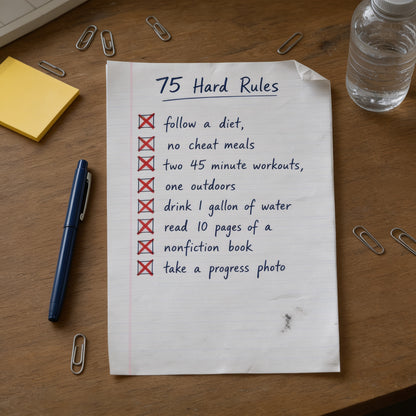 75 Hard Rules
follow a diet,
no cheat meals
two 45 minute workouts,
one outdoors
drink 1 gallon of water
read 10 pages of a
nonfiction book
take a progress photo